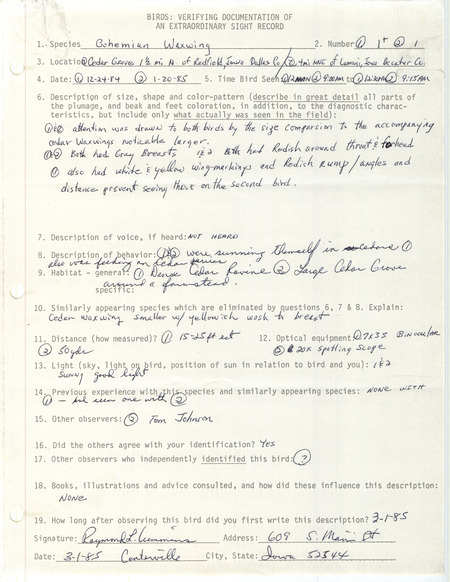 BIRDS: VERIFYING DOCUMENTATION OF
AN EXTRAORDINARY SIGHT RECORD
1. Species Bohemian Waxwing 2. Number ① 1 ② 1
3. Location ① Cedar Groves 1½ mi N. of Redfield, Iowa Dallas Co / ② 4mi NNE of Lamoni, Iowa Decatur Co.
4. Date: ① 12-24-84 ② 1-20-85 5. Time Bird Seen ① 9:00AM to ① ② 9:15AM
6. Description of size, shape and color-pattern (describe in great detail all parts
of the plumage, and beak and feet coloration, in addition, to the diagnostic charac-
teristics, but include only what actually was seen in the field):
①&② attention was drawn to both birds by the size comparsion to the accompanying
cedar waxwings noticable larger.
①&② Both had Gray Breasts 1&2 Both had Redish around throat & forhead
① also had white & yellow wing-markings and Redish Rump / angles and
distance prevent seeing those on the second bird.
7. Description of voice, if heard: NOT HEARD
8. Description of behavior: ①② were sunning themself in cedars ①
also was feeding on Cedar
9. Habitat - general: ① Dense Cedar Ravine ② Large Cedar Grove
around a farmstead.
specific:
10. Similarly appearing species which are eliminated by questions 6, 7 & 8. Explain:
Cedar Waxwing smaller w/ yellowish wash to breast
11. Distance (how measured)? ① 15-25ft est 12. Optical equipment: ① 7x35 Binocular
② 50yds ② 20x spotting scope
13. Light (sky, light on bird, position of sun in relation to bird and you): 1&2
Sunny good light
14. Previous experience with this species and similarly appearing species: NONE WITH
① — had seen one with ②
15. Other observers: ② Tom Johnson
16. Did the others agree with your identification? Yes
17. Other observers who independently identified this bird: ?
18. Books, illustrations and advice consulted, and how did these influence this description:
NONE
19. How long after observing this bird did you first write this description? 3-1-85
Signature: Raymond L. Cummins Address: 609 S. Main St
Date: 3-1-85 Centerville City, State: Iowa 52544